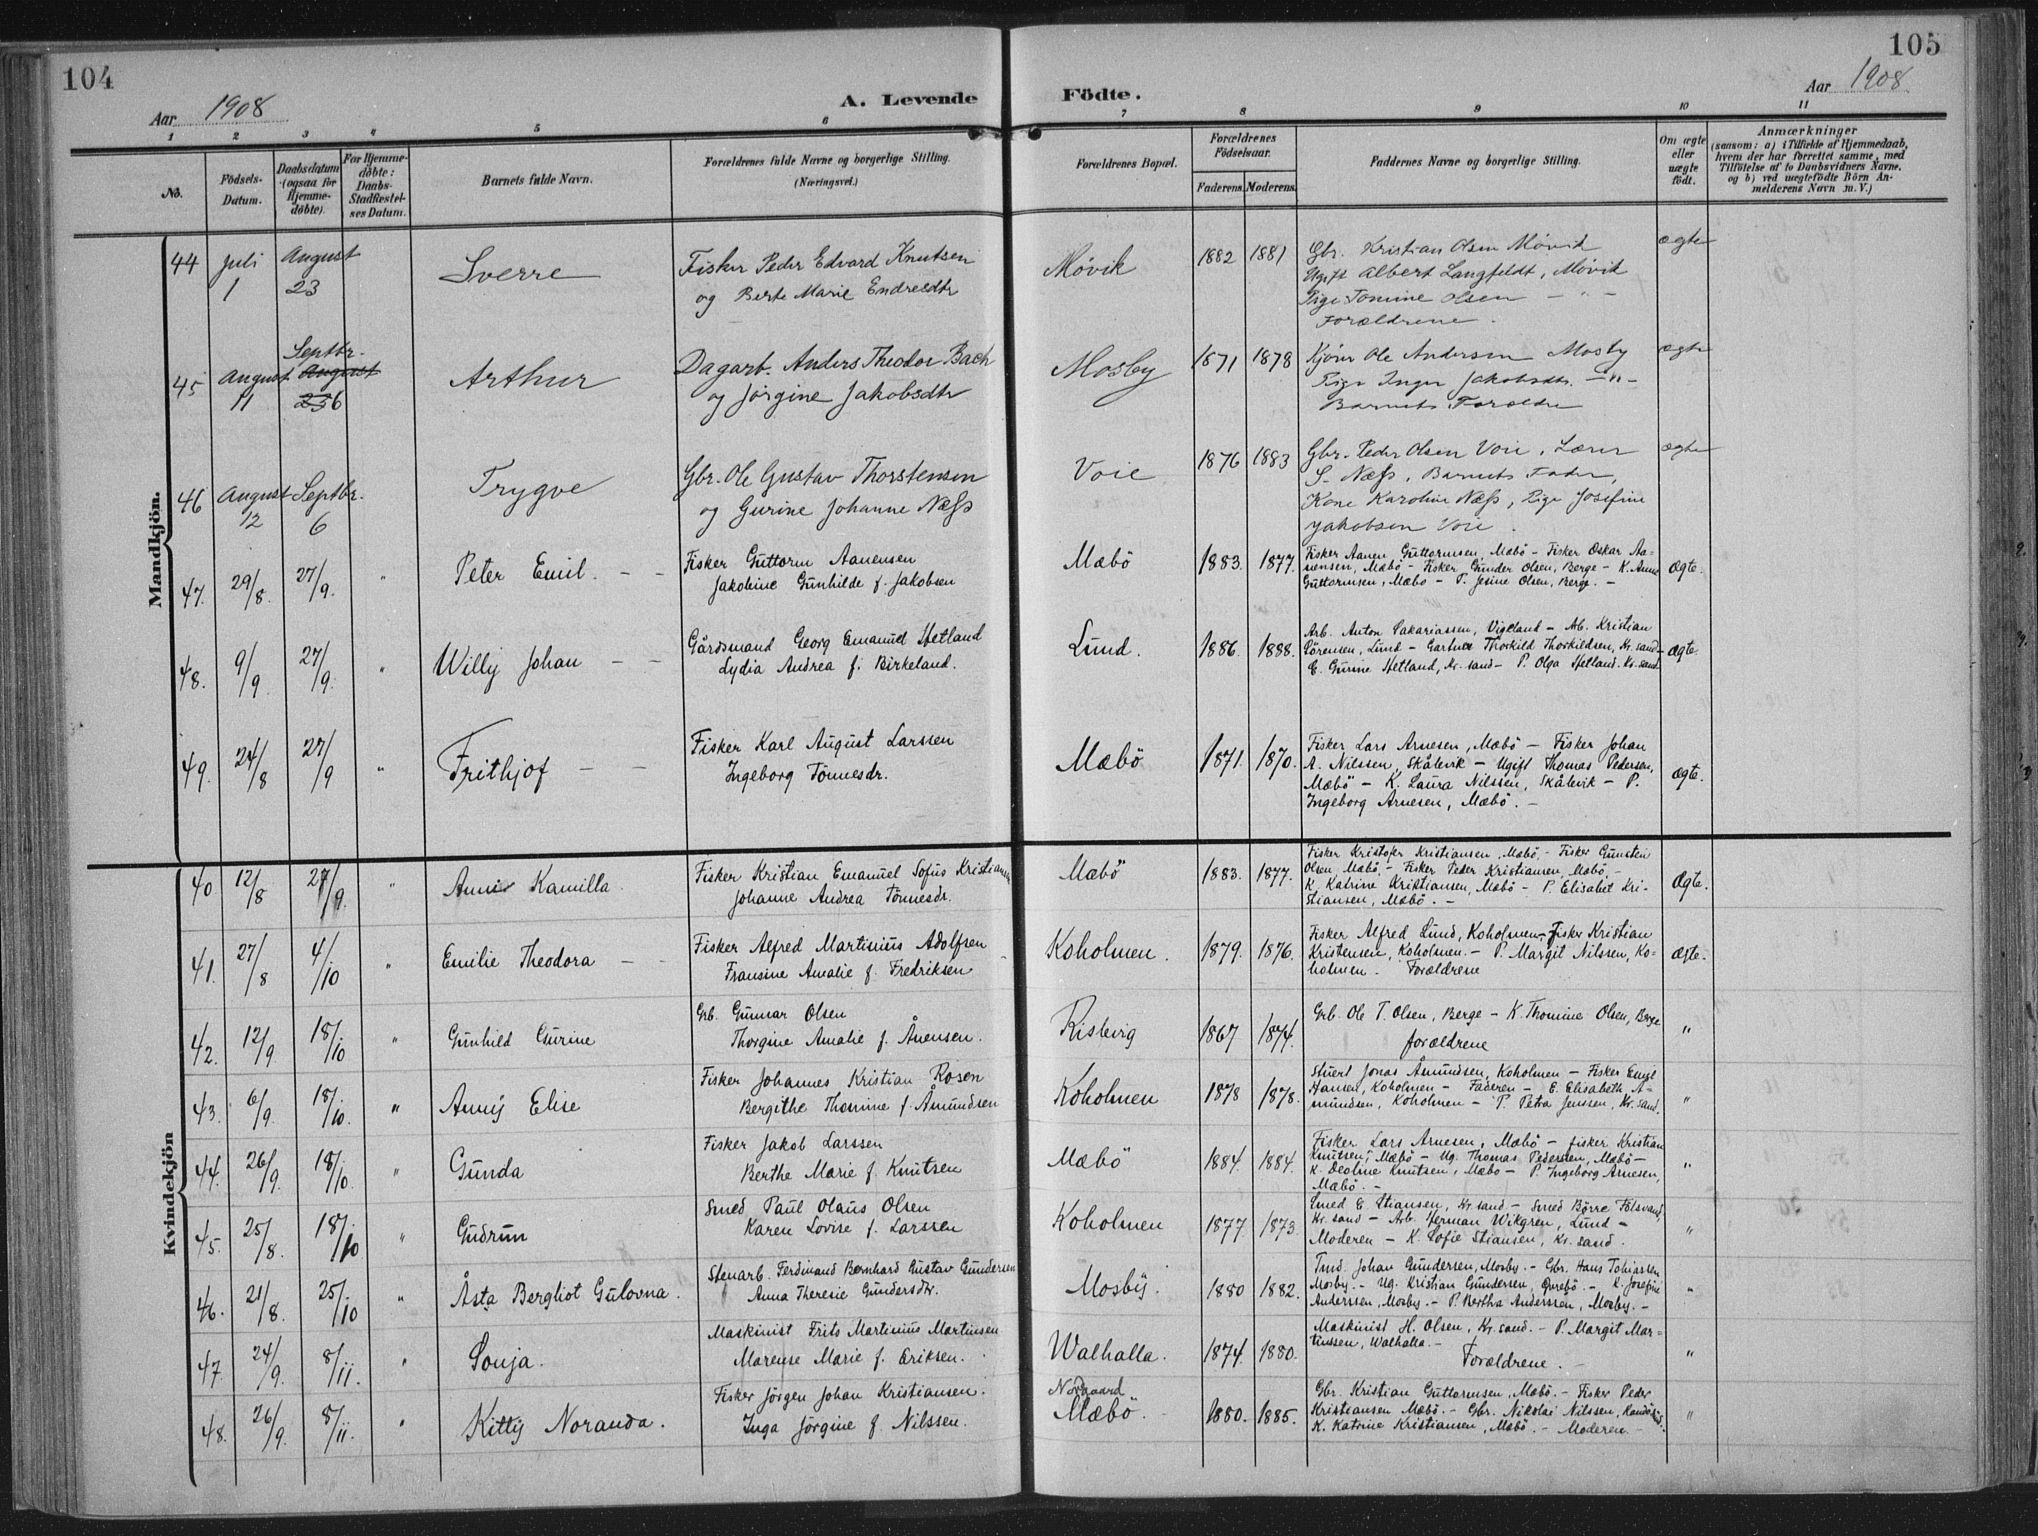 104
Aar 1908
A. Levende
Födte.
105
Aar 1908
1 2 3 4 5 6 7 8 9 10 11
No.
Födsels-
Datum.
Daabsdatum
(ogsaa for
Hjemme-
döbte).
For Hjemme-
döbte:
Daabs-
Stadfæstel-
ses Datum.
Barnets fulde Navn.
Forældrenes fulde Navne og borgerlige Stilling.
(Næringsvei.)
Forældrenes Bopæl.
Forældrenes
Födselsaar.
Faderens. Moderens.
Faddernes Navne og borgerlige Stilling.
Om ægte
eller
uægte
födt.
Anmærkninger
(saasom: a) i Tilfælde af Hjemmedaab,
hvem der har forrettet samme, med
Tilföielse af to Daabsvidners Navne.
og b) ved uægtefödte Börn An-
melderens Navn m. V.)
Mandkjön.
44 Juli 1 August 23 Sverre
Fisker Peder Edvard Knutsen
og Berte Marie Endresdtr
Møvik 1882 1881
Gbr. Kristian Olsen Møvik
Ugift Albert Langfeldt, Møvik
Pige Tomine Olsen — " —
Forældrene.
ægte
45 August 11 Septbr. August 23 6 Arthur
Dagarb. Anders Theodor Bach
og Jørgine Jakobsdtr
Mosby 1871 1878
Ole Andersen Mosby
Pige Inger Jakobsdtr. — " —
Barnets Forældre
ægte
46 August 12 Septbr. 6 Trygve
Gbr. Ole Gustav Thorstensen
og Gurine Johanne Næss
Voie 1876 1883
Gbr. Peder Olsen Voie, Lærer
S. Næss, Barnets Fader,
Kone Karoline Næss, Pige Josefine
Jakobsen Voie.
ægte
47. 29/8 27/9 " Peter Emil. — —
Fisker Guttorm Aanensen
Jakobine Gunhilde f. Jakobsen
Mæbö 1883. 1877.
Fisker Aanen Guttormsen, Mæbö — Fisker Oskar Aa-
nensen, Mæbö — Fisker Gunder Olsen, Berge — K. Anne
Guttormsen, Mæbö — P. Jesine Olsen, Berge. —
Ægte.
48. 9/9 27/9. " Willy Johan — —
Gårdsmand Georg Emanuel Hetland
Lydia Andrea f. Birkeland.
Lund. 1886. 1888.
Arb. Anton Sakariassen, Vigeland — Arb. Kristian
Sörensen, Lund — Gartner Thorkild Thorkildsen, Kr.sand —
E. Gurine Hetland, Kr. sand — P. Olga Hetland. Kr. sand.
Ægte.
49. 24/8 27/9 " Frithjof — —
Fisker Karl August Larssen
Ingeborg Tönnesdr.
Mæbö 1871. 1870.
Fisker Lars Arnesen, Mæbö — Fisker Johan
A. Nilssen, Skålevik — Ugift Thomas Pedersen,
Mæbö — K. Laura Nilssen, Skålevik — P.
Ingeborg Arnesen, Mæbö. —
Ægte.
Kvindekjön
40 12/8 27/9. " Kamilla.
Fisker Kristian Emanuel Sofus Kristiansen
Johanne Andrea Tönnesdr.
Mæbö 1883. 1877.
Fisker Kristofer Kristiansen, Mæbö, — Fisker Gunsten
Olsen Mæbö, — Fisker Peder Kristiansen, Mæbö, —
K. Katrine Kristiansen, Mæbö — P. Elisabet Kri-
stiansen, Mæbö. —
Ægte.
41. 27/8 4/10 " Emilie Theodora — —
Fisker Alfred Martinius Adolfsen
Fransine Amalie f. Fredriksen
Koholmen. 1879. 1876.
Fisker Alfred Lund, Koholmen — Fisker Kristian
Kristensen, Koholmen. — P. Margit Nilssen, Ko-
holmen. Forældrene
Ægte.
42. 12/9. 18/10 " Gunhild Gurine
Grb. Gunnar Olsen
Thorgine Amalie f. Ånensen.
Risberg 1867 1874.
Grb. Ole T. Olsen, Berge — K. Thomine Olsen, Berge
forældrene
"
43. 6/9. 18/10. " Anny Elise
Fisker Johannes Kristian Rosen
Bergithe Thomine f. Åmundsen
Koholmen 1878 1878.
Stuert Jonas Åmundsen, Koholmen — Fisker Emil
Hansen, Koholmen — Faderen — E. Elisabeth A-
mundsen, Koholmen — P. Petra Jenssen, Kr. sand.
"
44. 26/9. 18/10. " Gunda
Fisker Jakob Larssen
Berthe Marie f. Knutsen
Mæbö 1884. 1884.
Fisker Lars Arnesen, Mæbö — fisker Kristian
Knutsen, Mæbö — Ug. Thomas Pedersen, Mæbö —
K. Deoline Knutsen, Mæbö — P. Ingeborg Arnesen,
Mæbö. —
"
45. 25/8. 18/10 " Gudrun
Smed Paul Olaus Olsen
Karen Lovise f. Larssen
Koholmen 1877. 1873.
Smed E Stiansen, Kr. sand — Smed Börre
Kr. sand — Arb. Herman Wikgren, Lund —
Moderen — K. Sofie Stiansen, Kr. sand.
"
46. 21/8. 25/10 " Åsta Bergliot Gulovna.
Stenarb. Ferdinand Bernhard Gustav Gundersen
Anna Theresie Gundersdtr.
Mosby. 1880 1882.
Tmd. Johan Gundersen, Mosby. — Gbr. Hans Tobiassen
Mosby. — Ug. Kristian Gundersen, Øvrebö. — K. Josefine
Anderssen, Mosby. — P. Bertha Anderssen, Mosby. —
"
47 24/9. 8/11. " Sonja.
Maskinist Frits Martinius Martinsen
Marense Marie f. Eriksen.
Walhalla. 1874. 1880.
Maskinist H. Olsen, Kr. sand. — P. Margit Mar-
tinssen, Walhalla. —
Forældrene. —
"
48. 26/9. 8/11. " Kitty Noranda.
Fisker Jörgen Johan Kristiansen.
Inga Jörgine f. Nilssen.
Nordgaard
Mæbö. 1880. 1885.
Gbr. Kristian Guttormsen, Mæbö. — Fisker Peder
Kristiansen Mæbö. — Gbr. Nikolai Nilssen,
K. Katrine Kristiansen, Mæbö. — Moderen —
"